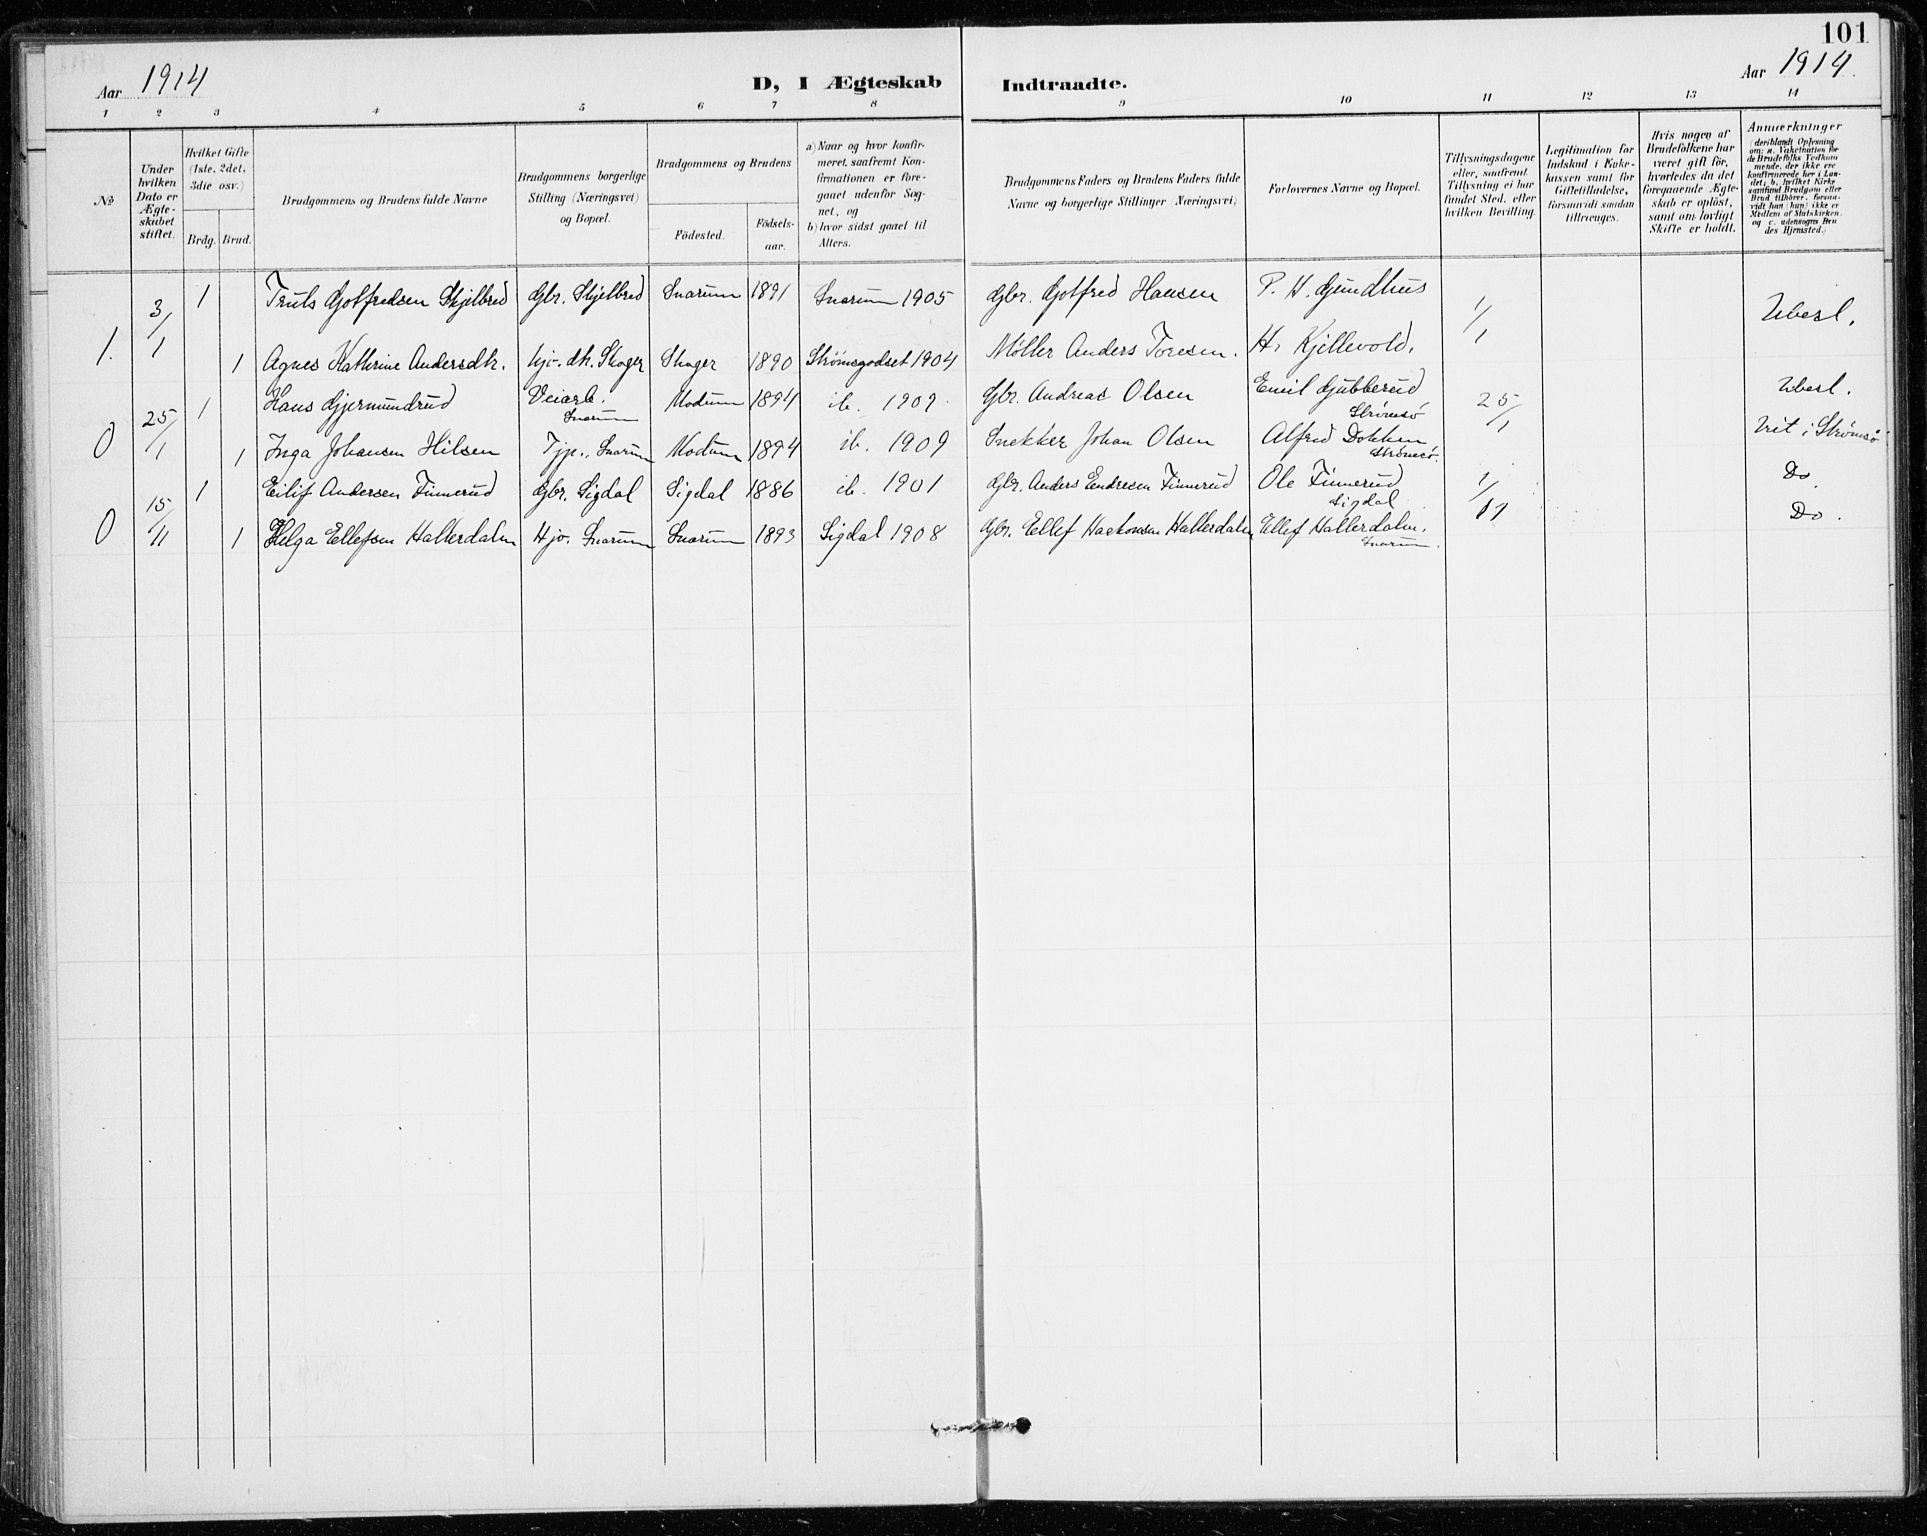 101
Aar 1914
D, I Ægteskab Indtraadte.
Aar 1914.
1 2 3 4 5 6 7 8 9 10 11 12 13 14
№
Under hvilken Dato er Ægteskabet stiftet.
Hvilket Gifte (1ste, 2det, 3die osv.)
Brdg. Brud.
Brudgommens og Brudens fulde Navne
Brudgommens borgerlige Stilling (Næringsvei) og Bopæl.
Brudgommens og Brudens
Födested. Födsels-aar.
a) Naar og hvor konfirmeret, saafremt Konfirmationen er foregaaet udenfor Sognet, og
b) hvor sidst gaaet til Alters.
Brudgommens Faders og Brudens Faders fulde Navne og borgerlige Stillinger (Næringsvei)
Forlovernes Navne og Bopæl.
Tillysningsdagene eller, saafremt Tillysning ei har fundet Sted, efter hvilken Bevilling.
Legitimation for Indskud i Enkekassen samt for Giftetilladelse, forsaavidt saadan tiltrænges.
Hvis nogen af Brudefolkene har været gift för, hvorledes da det foregaaende Ægteskab er oplöst, samt om lovligt Skifte er holdt.
Anmærkninger (deriblandt Oplysning om: a. Vakcination for de Brudefolks Vedkommende, der ikke ere konfirmerede her i Landet; b. hvilket Kirkesamfund Brudgom eller Brud tilhörer, forsaavidt han (hun) ikke er Medlem af Statskirken, og c. udensogns Brudes Hjemsted.)
3/1 1 Truls Gotfredsen Skjelbred Gbr. Skjelbred Snarum 1891 Snarum 1905 Gbr. Gotfred Hansen P. H. Gundhus 1/1 Ubesl.
1. 1 Agnes Kathrine Andersdtr. hjv. dtr. Skoger Skoger 1890 Strömsgodset 1904 Möller Anders Toresen. H. Kjellevold.
25/1 1 Hans Gjermundrud Veiarb. Snarum Modum 1894 ib. 1909 Gbr. Andreas Olsen Emil Gubberud Strömsö 25/1 Ubesl.
0 1 Inga Johansen Hilsen Tjp., Snarum Modum 1894 ib. 1909 Snekker Johan Olsen Alfred Dokken, Strömsö. Viet i Strömsö
15/11 1 Eilif Andersen Finnerud Gbr. Sigdal Sigdal 1886 ib. 1901 Gbr. Anders Endresen Finnerud Ole Finnerud Sigdal 1/11 Do.
0 1 Helga Ellefsen Hallerdalen Hjv. Snarum Snarum 1893 Sigdal 1908 Gbr. Ellef Haakonsen Hallerdalen Ellef Hallerdalen. Snarum. Do.